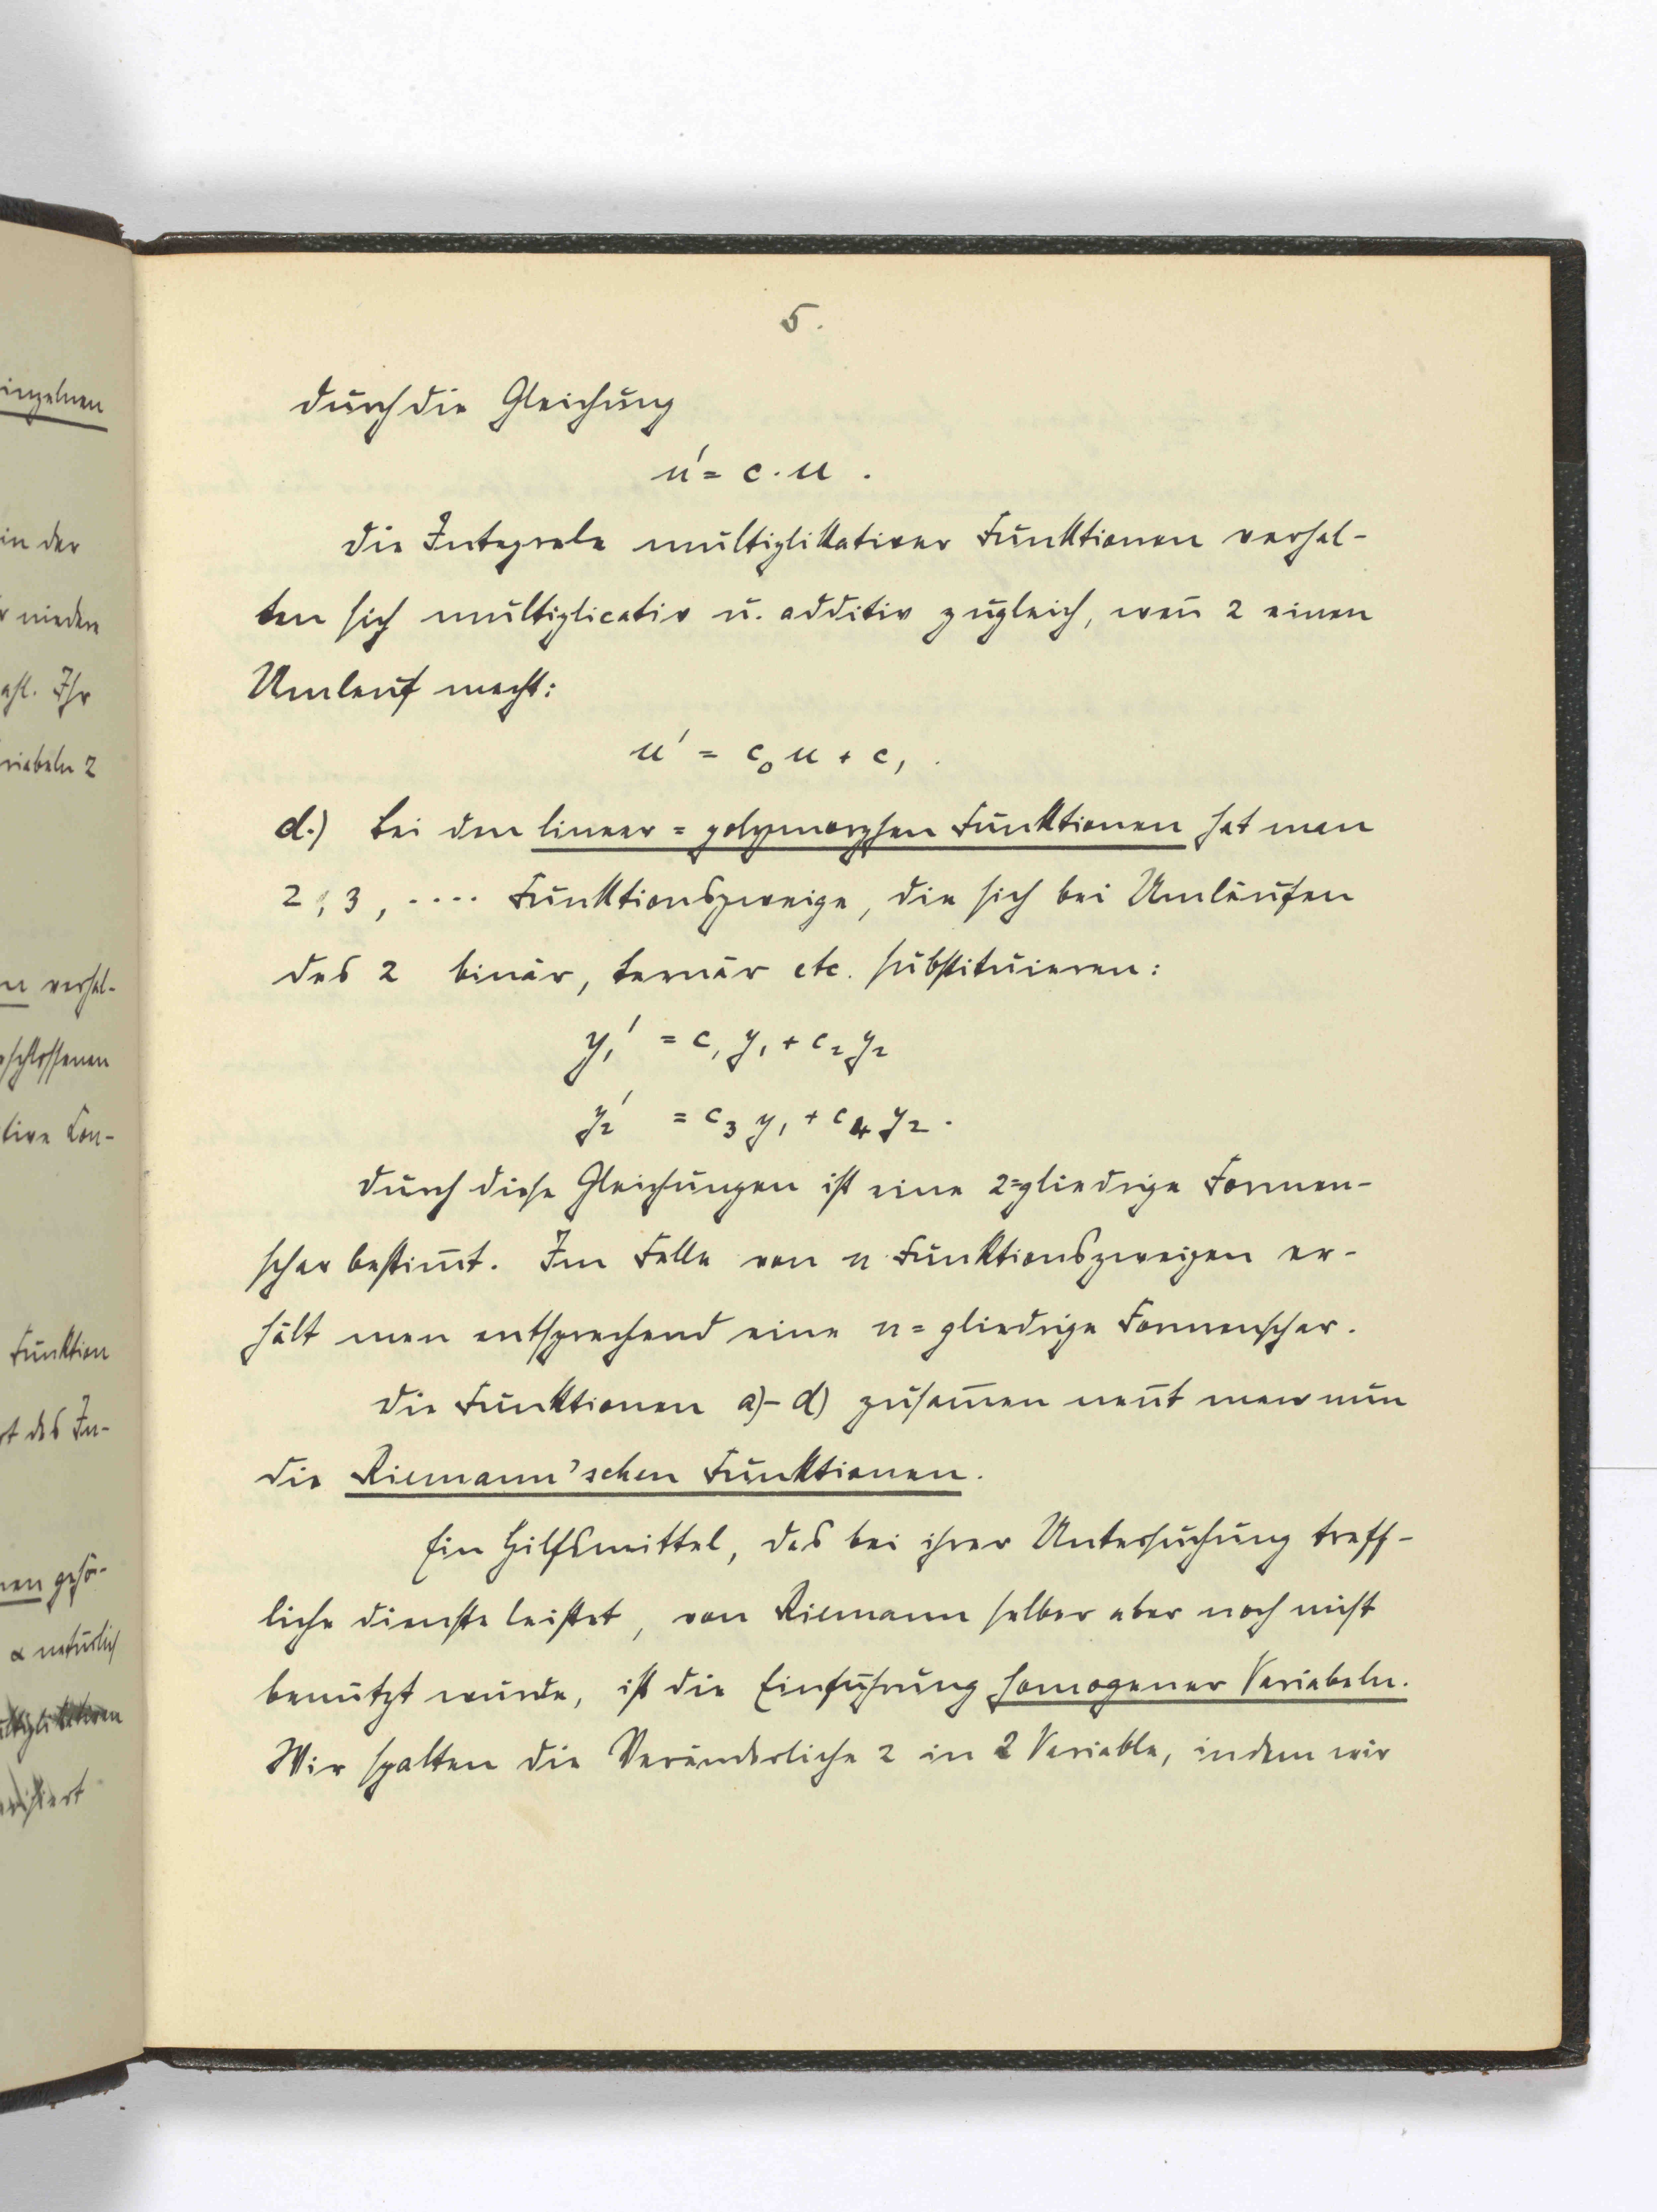 5.
durch die Gleichung
u' = c · u .
Die Integrale multiplikativer Funktionen verhal-
ten sich multiplicativ u. additiv zugleich, wen̄ z einen
Umlauf macht:
u' = c₀ u + c₁ .
d.) Bei den linear = polymorphen Funktionen hat man
2, 3, .... Funktionszweige, die sich bei Umläufen
des z binär, ternär etc. substituieren:
y₁' = c₁ y₁ + c₂ y₂
y₂' = c₃ y₁ + c₄ y₂ .
Durch diese Gleichungen ist eine 2=gliedrige Formen-
schar bestim̄t. Im Falle von n Funktionszweigen er-
hält man entsprechend eine n=gliedrige Formenschar.
Die Funktionen a)-d) zusam̄en nen̄t man nun
die Riemann'schen Funktionen.
Ein Hilfsmittel, das bei ihrer Untersuchung treff-
liche Dienste leistet, von Riemann selber aber noch nicht
benützt wurde, ist die Einführung homogener Variabeln.
Wir spalten die Veränderliche z in 2 Variable, indem wir
inzelnen
in der
nieder
ahl. Ihr
riabeln z
verhal-
eschlossenen
tive Con-
Funktion
rt des In-
nen gehö-
α natürlich